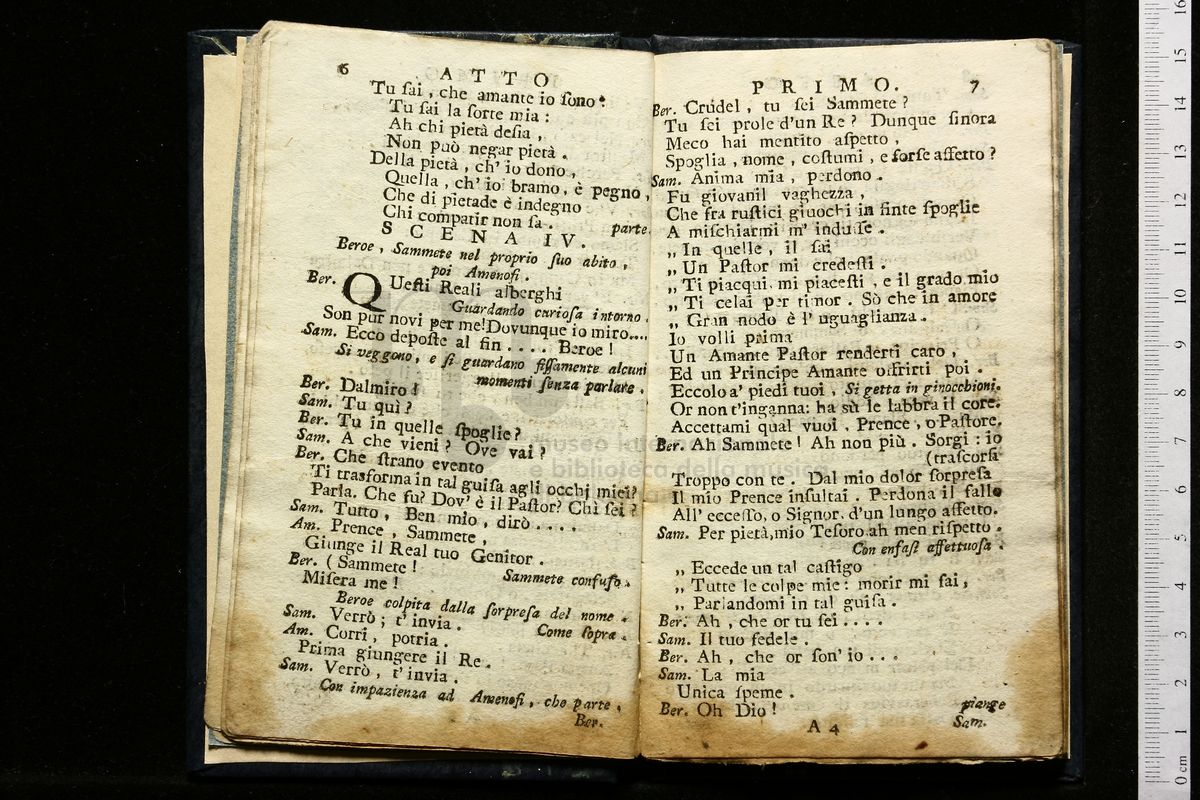 6 ATTO
Tu ſai, che amante io ſono:
Tu ſai la ſorte mia:
Ah chi pietà deſia,
Non può negar pietà.
Della pietà, ch' io dono,
Quella, ch' io bramo, è pegno,
Che di pietade è indegno
Chi compatir non ſa. parte.
SCENA IV.
Beroe, Sammete nel proprio ſuo abito,
poi Amenofi.
Ber. QUeſti Reali alberghi
Guardando curioſa intorno.
Son pur novi per me! Dovunque io miro....
Sam. Ecco depoſte al fin.... Beroe!
Si veggono, e ſi guardano fiſſamente alcuni
momenti ſenza parlare.
Ber. Dalmiro!
Sam. Tu quì?
Ber. Tu in quelle ſpoglie?
Sam. A che vieni? Ove vai?
Ber. Che ſtrano evento
Ti trasforma in tal guiſa agli occhj miei?
Parla. Che fu? Dov' è il Paſtor? Chì ſei?
Sam. Tutto, Ben mio, dirò....
Am. Prence, Sammete,
Giunge il Real tuo Genitor.
Ber. (Sammete! Sammete confuſo.
Miſera me!
Beroe colpita dalla ſorpreſa del nome.
Sam. Verrò; t' invia. Come ſopra.
Am. Corri, potria.
Prima giungere il Re.
Sam. Verrò, t' invia.
Con impazienza ad Amenofi, che parte.
Ber.
PRIMO. 7
Ber. Crudel, tu ſei Sammete?
Tu ſei prole d'un Re? Dunque ſinora
Meco hai mentito aſpetto,
Spoglia, nome, coſtumi, e forſe affetto?
Sam. Anima mia, perdono.
Fu giovanil vaghezza,
Che fra ruſtici giuochi in finte ſpoglie
A miſchiarmi m' induſſe.
„ In quelle, il ſai
„ Un Paſtor mi credeſti.
„ Ti piacqui, mi piaceſti, e il grado mio
„ Ti celai per timor. Sò che in amore
„ Gran nodo è l' uguaglianza.
Io volli prima
Un Amante Paſtor renderti caro,
Ed un Principe Amante offrirti poi.
Eccolo a' piedi tuoi, Si getta in ginocchioni.
Or non t'inganna: ha sù le labbra il core.
Accettami qual vuoi, Prence, o Paſtore.
Ber. Ah Sammete! Ah non più. Sorgi: io
(traſcorſa
Troppo con te. Dal mio dolor ſorpreſa
Il mio Prence inſultai. Perdona il fallo
All' ecceſſo, o Signor, d'un lungo affetto.
Sam. Per pietà, mio Teſoro ah men riſpetto.
Con enfaſi affettuoſa.
„ Eccede un tal caſtigo
„ Tutte le colpe mie: morir mi fai,
„ Parlandomi in tal guiſa.
Ber. Ah, che or tu ſei....
Sam. Il tuo fedele.
Ber. Ah, che or ſon' io...
Sam. La mia
Unica ſpeme.
Ber. Oh Dio! piange
A 4 Sam.
e biblioteca della musica
0 cm 1 2 3 4 5 6 7 8 9 10 11 12 13 14 15 16